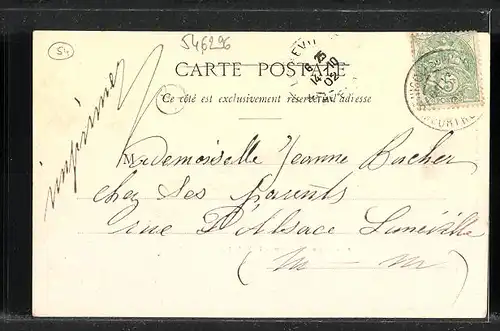 54
546296
CARTE POSTALE
8 25
14-10
02
Ce côté est exclusivement réservé à l'adresse
imprimé
Mademoiselle Jeanne Bacher
chez ses parents
rue d'Alsace Lunéville
(M - M)